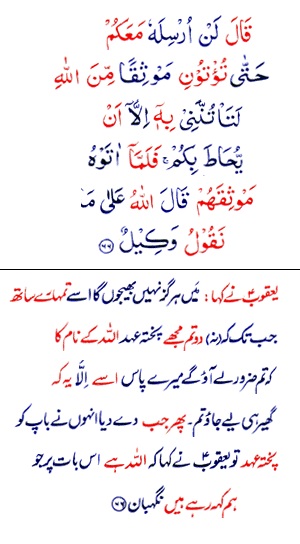 قَالَ لَنْ اُرْسِلَهٗ مَعَكُمْ
حَتّٰى تُؤْتُوْنِ مَوْثِقًا مِّنَ اللّٰهِ
لَتَاْتُنَّنِيْ بِهٖۤ اِلَّاۤ اَنْ
يُّحَاطَ بِكُمْ ۚ فَلَمَّاۤ اٰتَوْهُ
مَوْثِقَهُمْ قَالَ اللّٰهُ عَلٰى مَا
نَقُوْلُ وَكِيْلٌ ۝۶۶
یعقوبؑ نے کہا: مَیں ہرگز نہیں بھیجوں گا اسے تمہارے ساتھ
جب تک کہ (نہ) دو تم مجھے پختہ عہد اللہ کے نام کا
کہ تم ضرور لے آؤ گے میرے پاس اسے اِلَّا یہ کہ
گھیر ہی لیے جاؤ تم۔ پھر جب دے دیا انہوں نے باپ کو
پختہ عہد تو یعقوبؑ نے کہا کہ اللہ ہے اس بات پر جو
ہم کہہ رہے ہیں نگہبان ۝۶۶